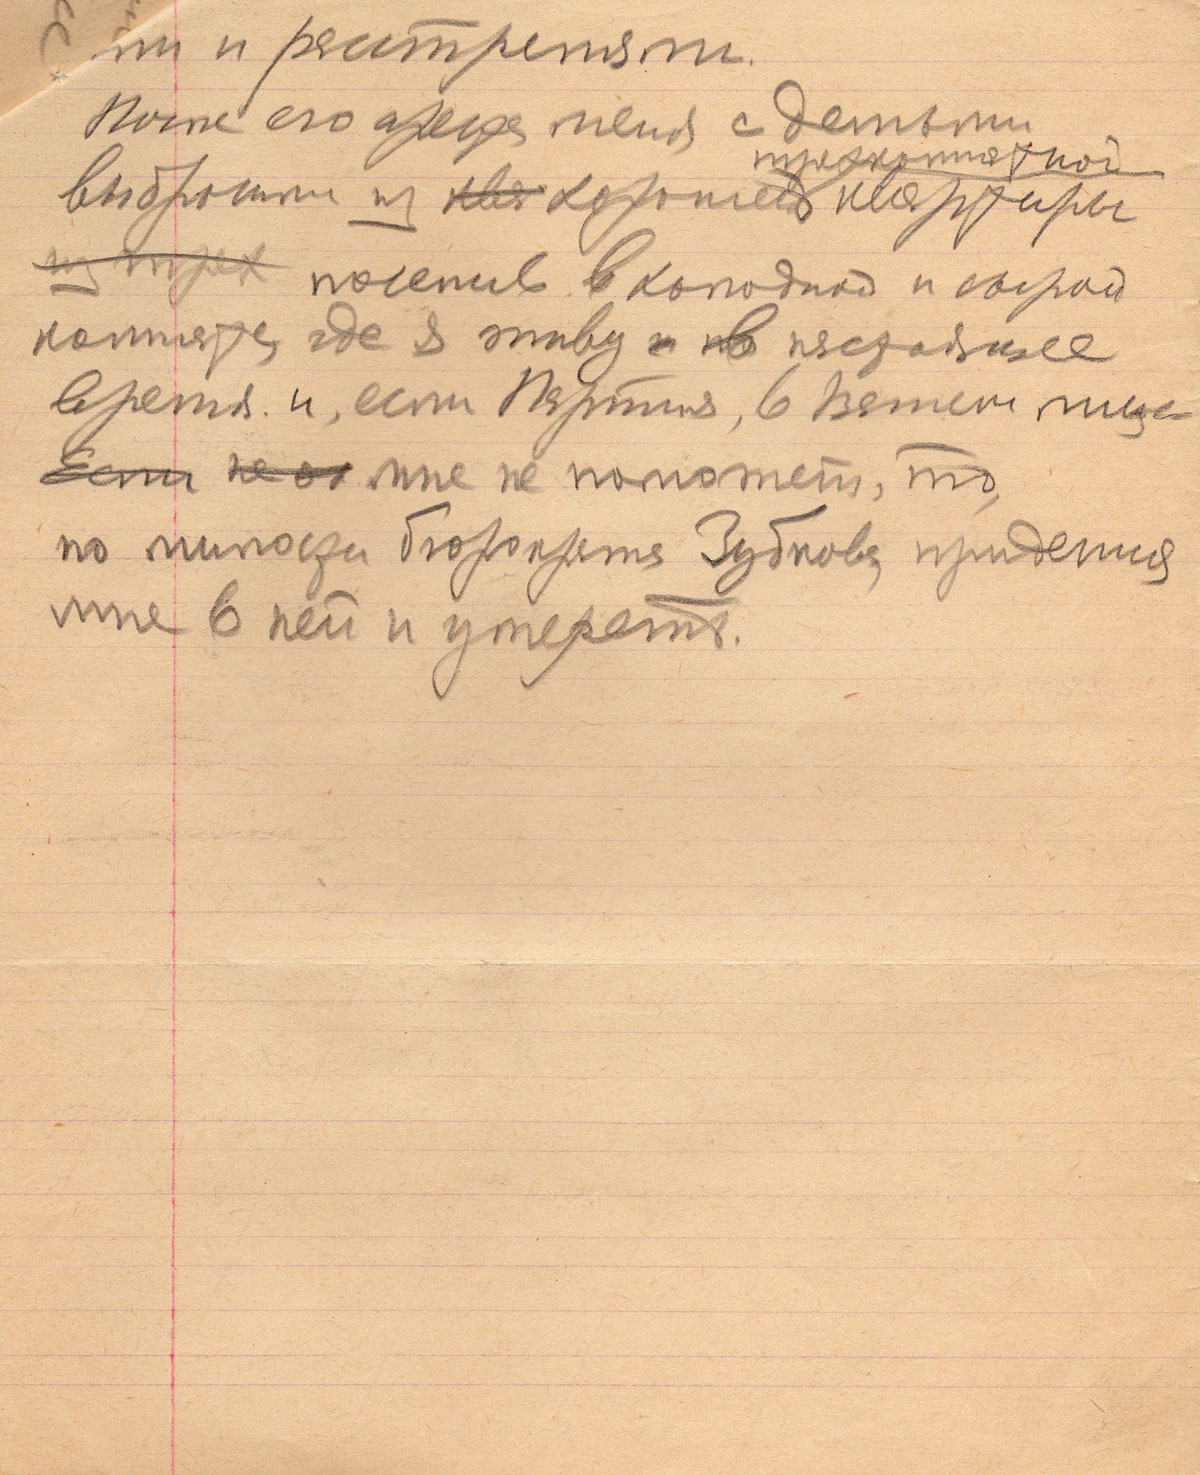 ли и расстреляли.
После его ареста меня с детьми
трехкомнатной
выбросили из ква хорошей квартиры
из трех поселив в холодной и сырой
комнате, где я живу и по настоящее
время. и, если Партия, в Вашем лице
Если не мне не поможет, то,
по милости бюрократа Зубкова, придется
мне в ней и умереть.